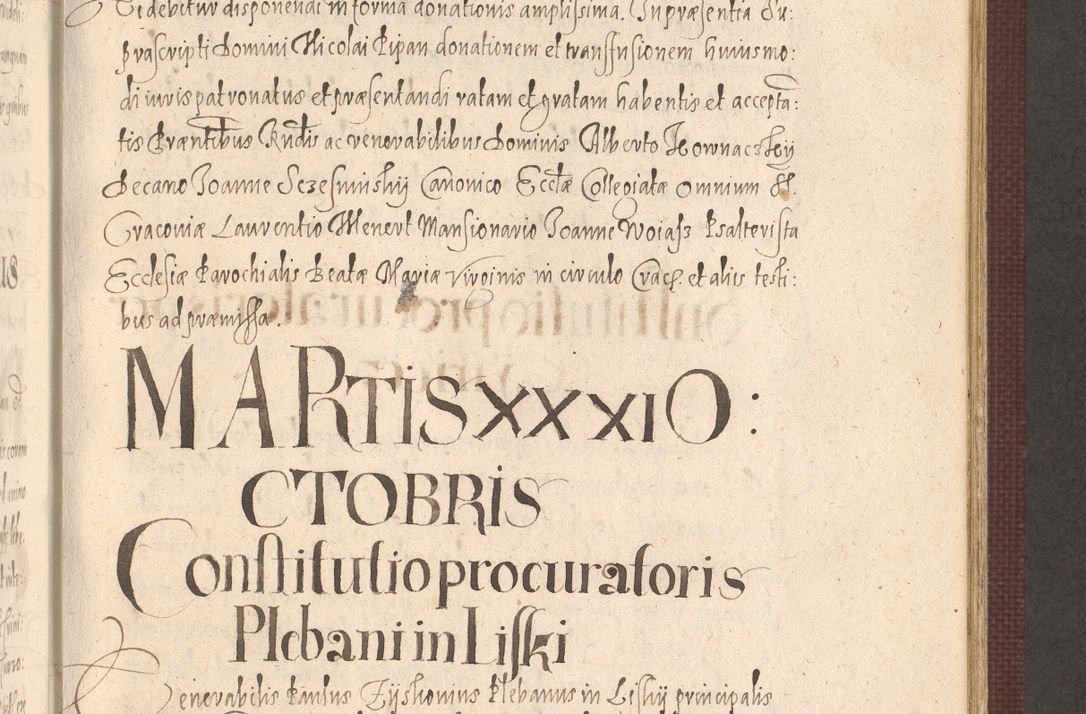 Ei debitur disponendi in forma donationis amplissima. In præsentia Su:
prascripti Domini Nicolai Pipan donationem et transfusionem huiusmo:
di iuris patronatus et præsentandi ratam et gratam habentis et accepta:
tis Præntibus Rndis ac venerabilibus Dominis Alberto
Decano Joanne Canonico Ecclæ Collegiatæ omnium SS.
Cracoviæ Laurentio Menert Mansionario Joanne Woiass Psalterista
Ecclesiæ Parochialis Beatæ Mariæ Virginis in circulo Crac. et aliis testi:
bus ad præmissa.
MARTIS XXXI O:
CTOBRIS
Constitutio procuratoris
Plebani in Liski
Venerabilis Paulus Plebanus in Liskij principalis